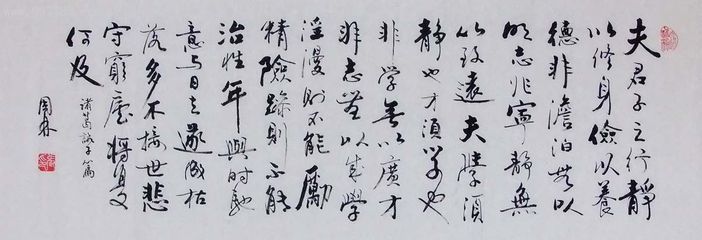 夫君子之行靜
以修身儉以養
德非澹泊無以
明志非寧靜無
以致遠夫學須
靜也才須学也
非学無以廣才
非志無以成學
淫漫则不能勵
精險躁则不能
治性年與時馳
意与日去遂成枯
落多不接世悲
守窮廬將復
何及
諸葛誡子篇
周林